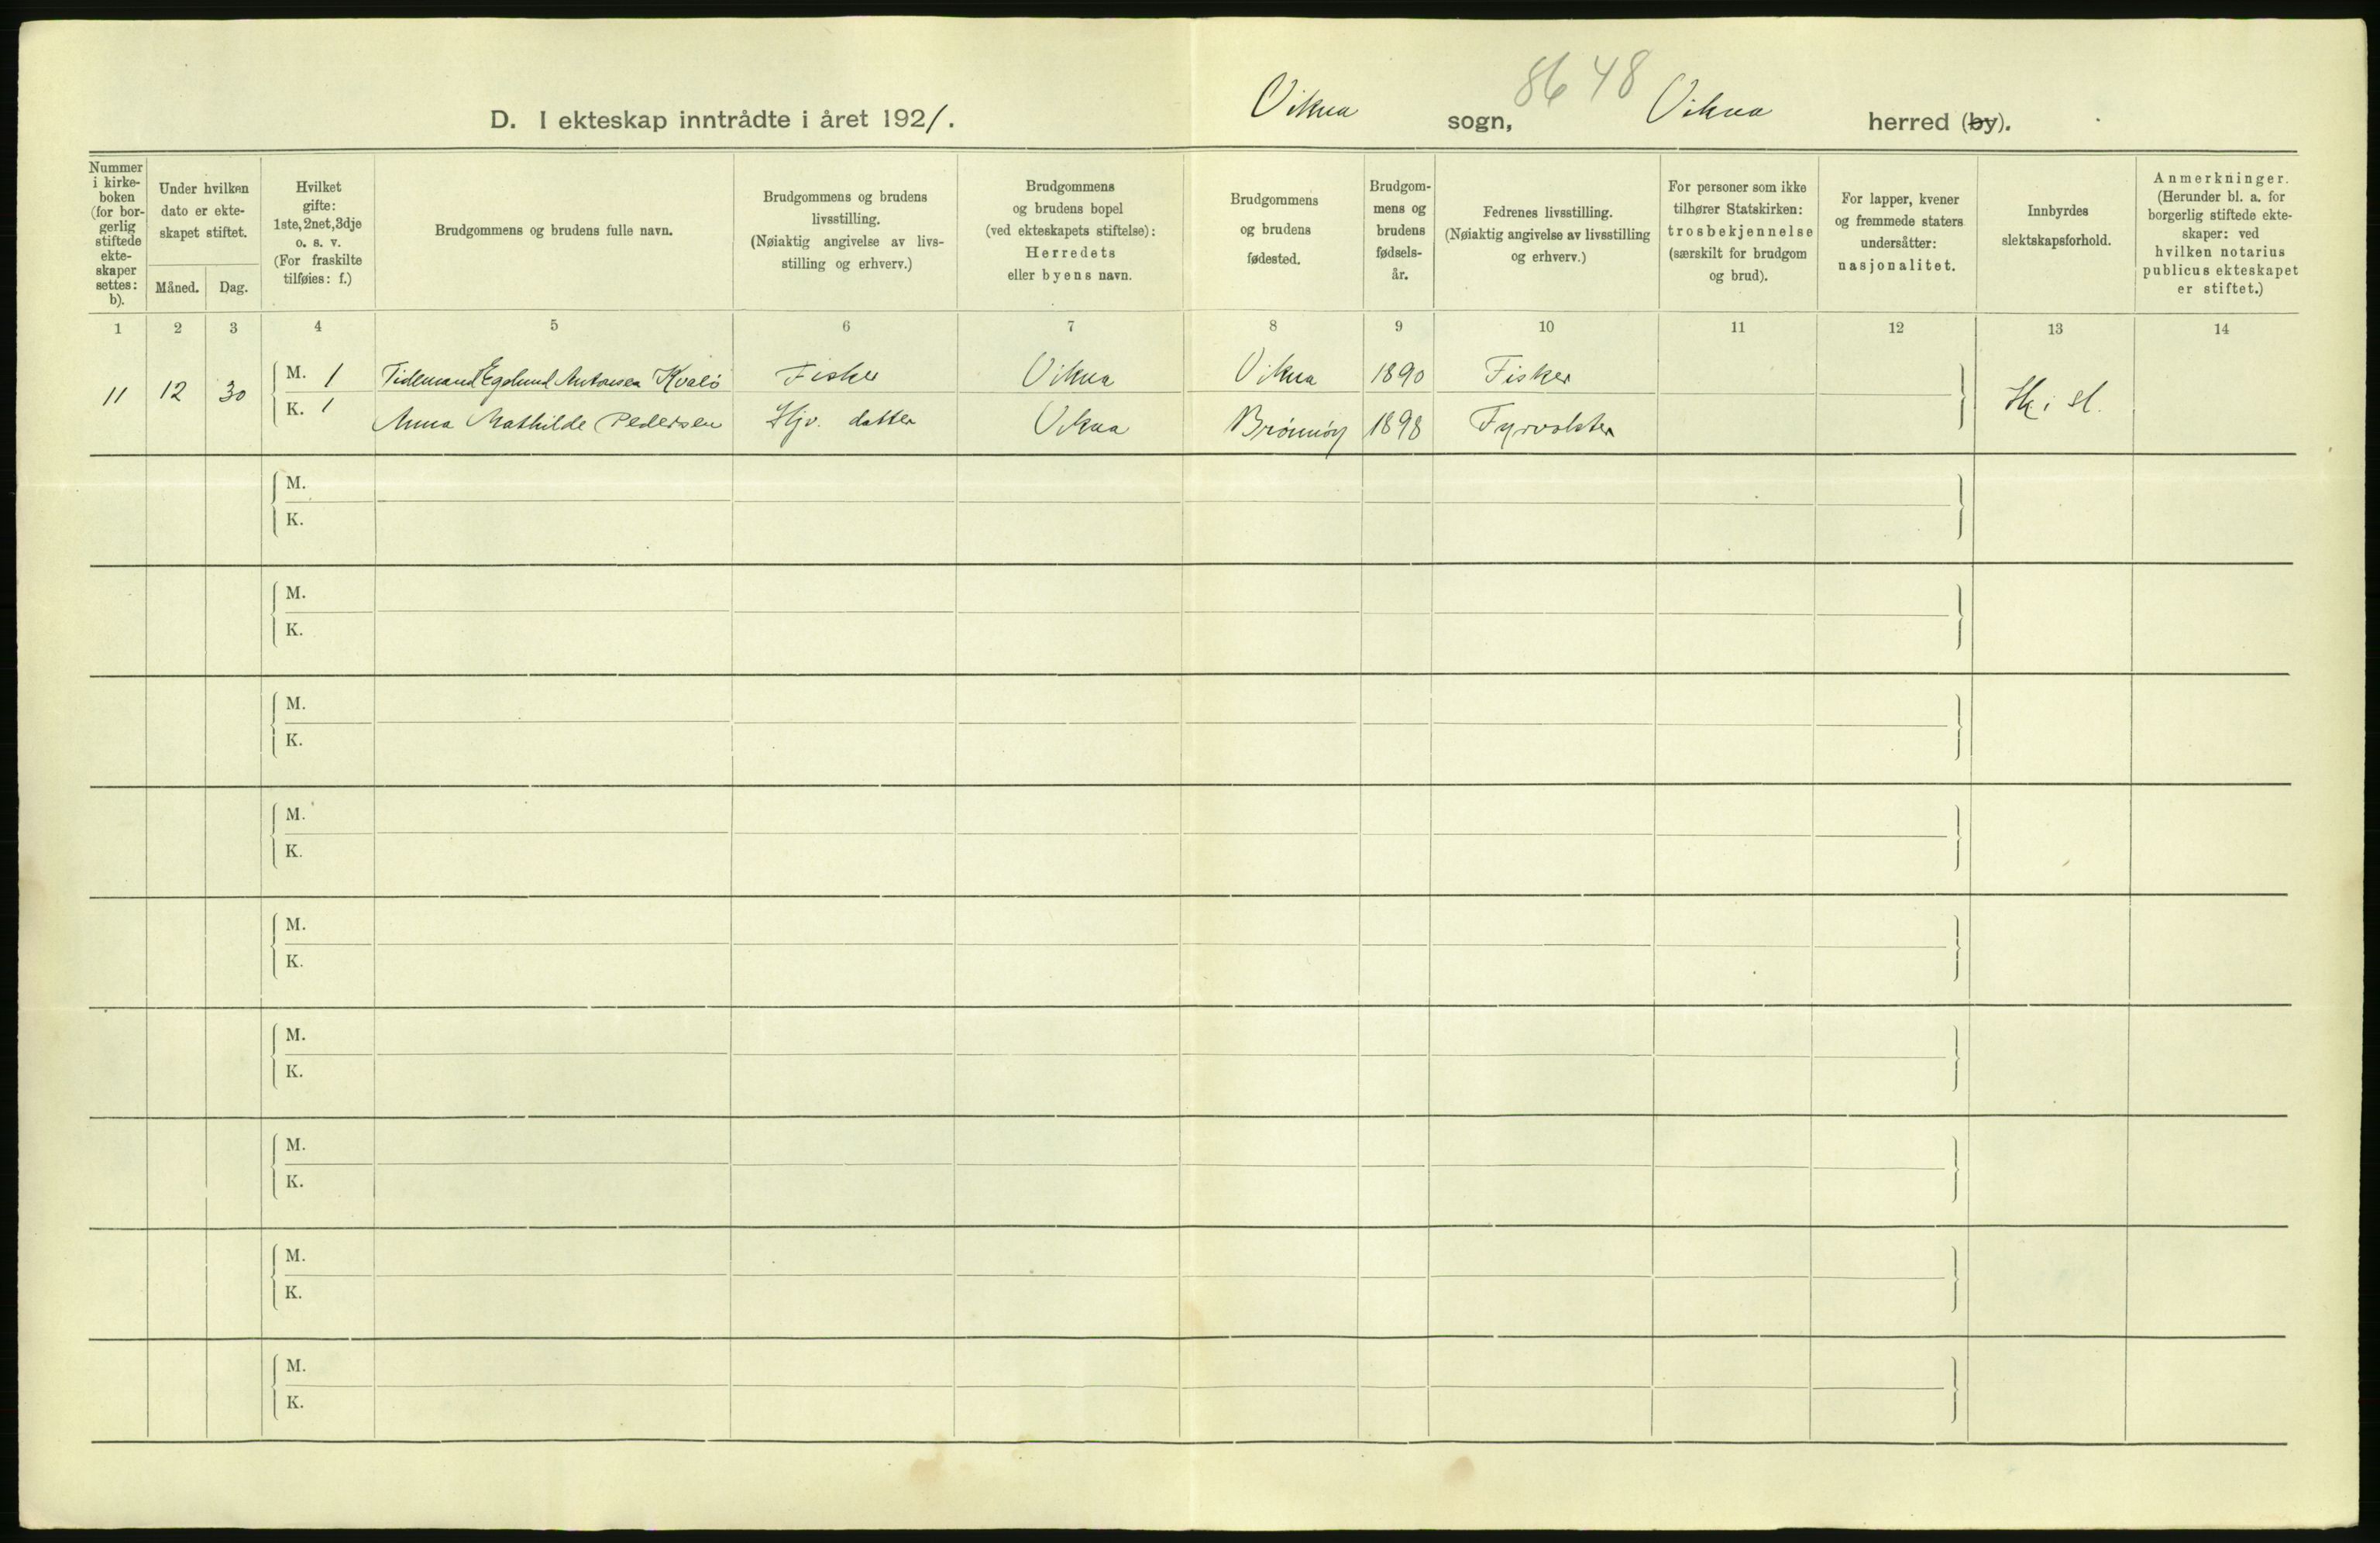 D. I ekteskap inntrådte i året 1921.
Vikna sogn, Vikna herred (by).
8648
Nummer i kirkeboken (for borgerlig stiftede ekteskaper settes: b).
Under hvilken dato er ekteskapet stiftet.
Måned. Dag.
Hvilket gifte: 1ste, 2net, 3dje o. s. v. (For fraskilte tilføies: f.)
Brudgommens og brudens fulle navn.
Brudgommens og brudens livsstilling. (Nøiaktig angivelse av livsstilling og erhverv.)
Brudgommens og brudens bopel (ved ekteskapets stiftelse): Herredets eller byens navn.
Brudgommens og brudens fødested.
Brudgommens og brudens fødselsår.
Fedrenes livsstilling. (Nøiaktig angivelse av livsstilling og erhverv.)
For personer som ikke tilhører Statskirken: trosbekjennelse (særskilt for brudgom og brud).
For lapper, kvener og fremmede staters undersåtter: nasjonalitet.
Innbyrdes slektskapsforhold.
Anmerkninger. (Herunder bl. a. for borgerlig stiftede ekteskaper: ved hvilken notarius publicus ekteskapet er stiftet.)
1 2 3 4 5 6 7 8 9 10 11 12 13 14
11 12 30 M. 1 Tidemand Egelund Antonsen Kvalö Fisker Vikna Vikna 1890 Fisker
K. 1 Anna Mathilde Pedersen Hjv. datter Vikna Brönnöy 1898 Fyrvokter
Ik. i sl.
M.
K.
M.
K.
M.
K.
M.
K.
M.
K.
M.
K.
M.
K.
M.
K.
M.
K.